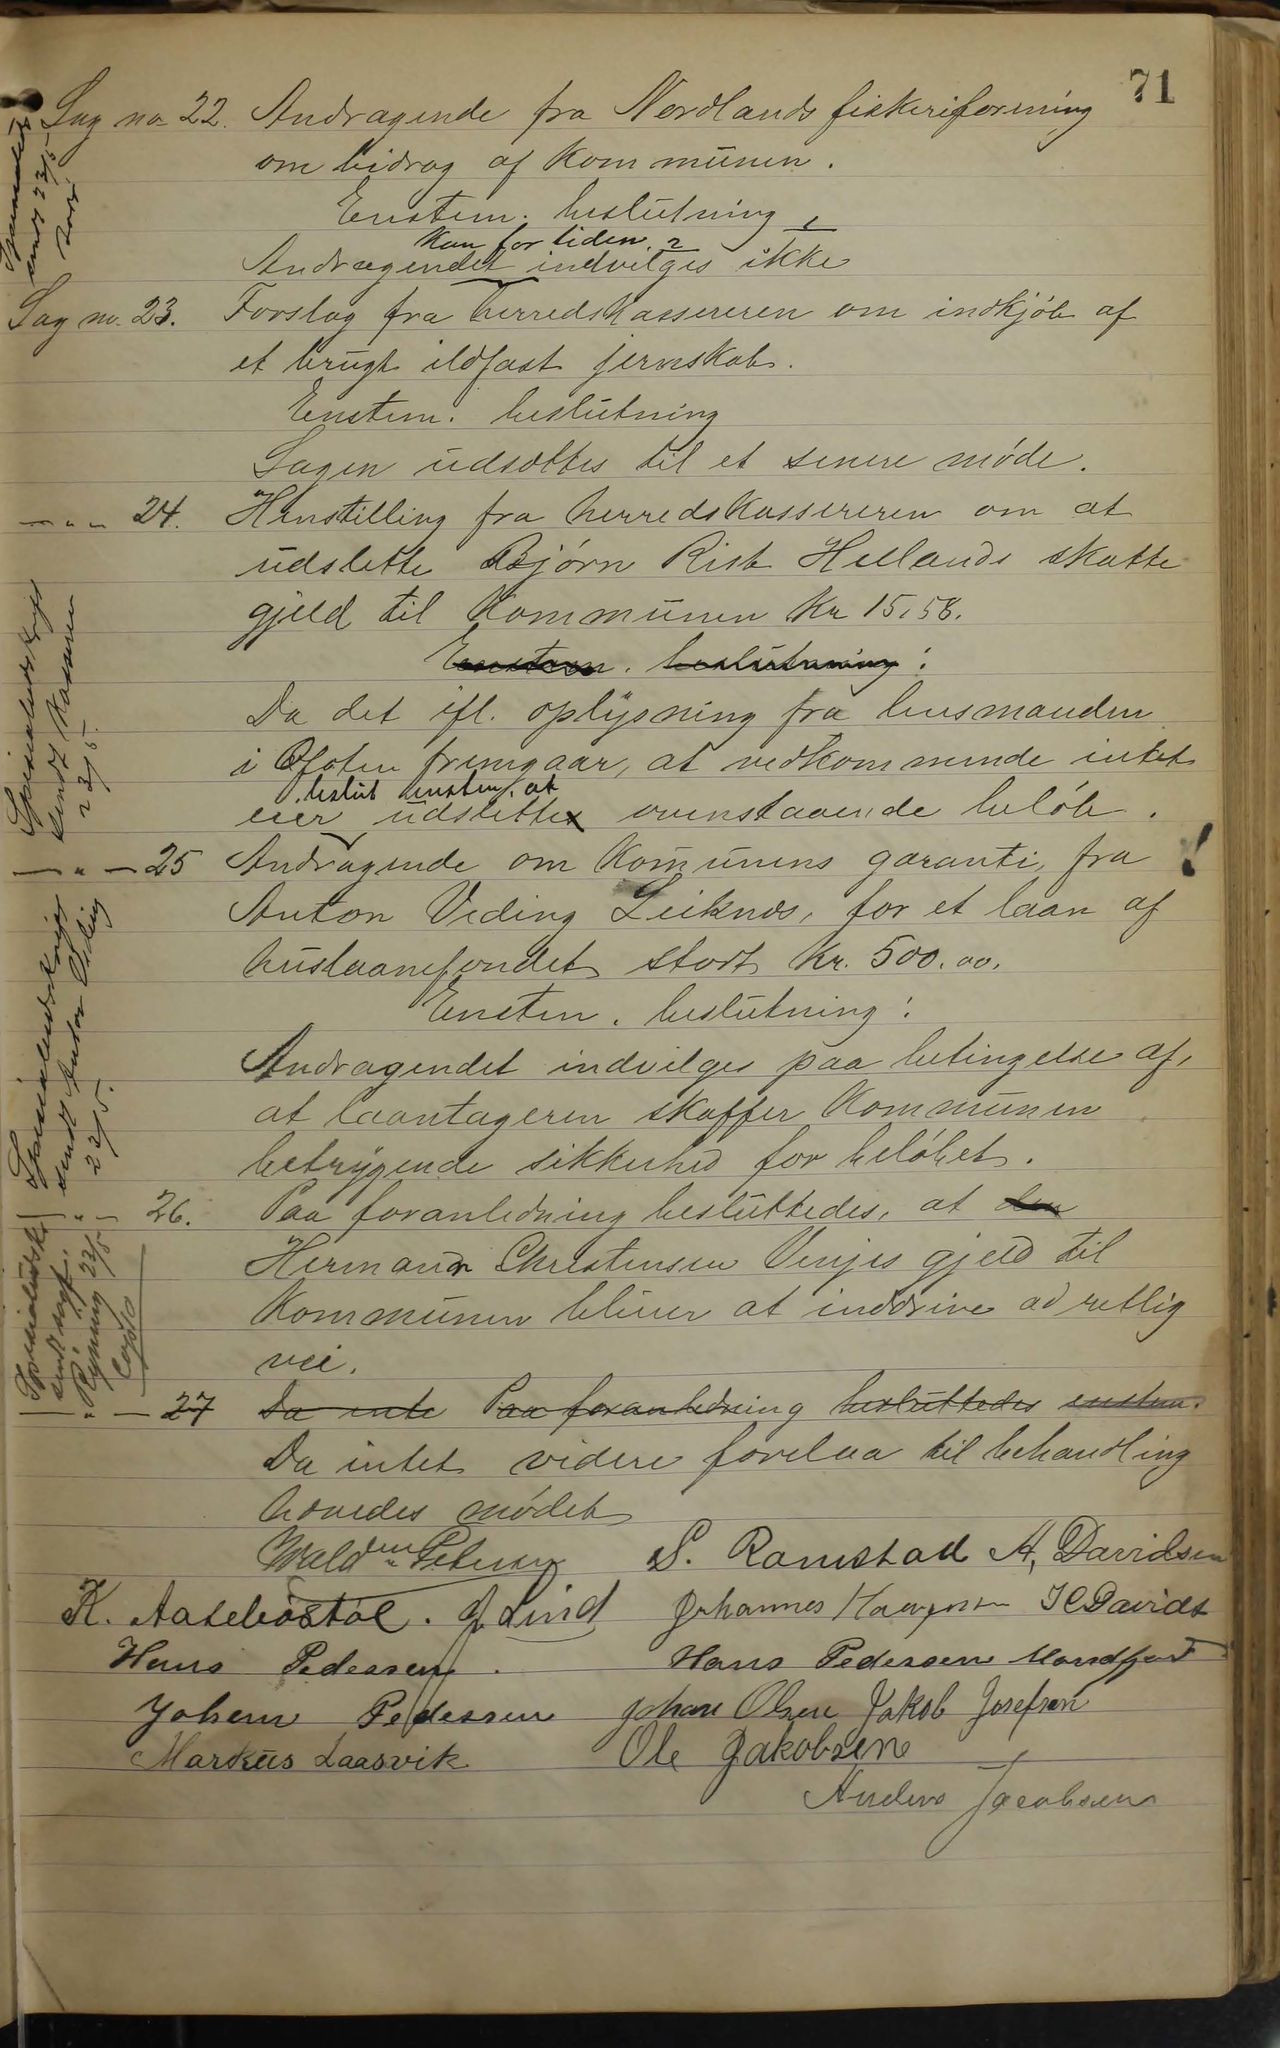 71
Sag no 22. Andragende fra Nordlands fiskeriforening
om bidrag af kommunen.
Enstem. beslutning
kan for tiden
Andragendet indvilges ikke
Sag no. 23. Forslag fra herredskassereren om indkjøb af
et brugt ildfast jernskab.
Enstem. beslutning
Sagen udsættes til et senere møde.
— „ — 24. Henstilling fra herredskassereren om at
udslette Bjørn Rist Hellands skatte
gjeld til kommunen kr 15,58.
Enstem. beslutning:
Da det ifl. oplysning fra lensmanden
i Ofoten fremgaar, at vedkommende intet
beslut enstem. at
eier udslette ovenstaaende beløb.
— „ — 25 Andragende om kommunens garanti, fra
Anton Veding Leiknes, for et laan af
huslaanefondet stort kr. 500.00.
Enstem. beslutning:
Andragendet indvilges paa betingelse af,
at laantageren skaffer kommunen
betryggende sikkerhed for beløbet.
— „ — 26. Paa foranledning besluttedes, at den
Hermann Christensen Vinjes gjeld til
kommunen bliver at inddrive ad retlig
vei.
— „ — 27 Da inte Paa foranledning besluttedes enstem.
Da intet videre forelaa til behandling
hævedes mødet
S. Ramstad A. Davidsen
Lind Johannes
Hans Pedersen. Hans Pedersen
Johan Pedersen Johan Olsen Jakob Josefsen
Markus Laasvik Ole Jakobsen
Anders Jacobsen
sendt 23/5
Spesialudskrift
sendt kassereren
23/5.
Spesialudskrift
sendt Anton Veding
23/5.